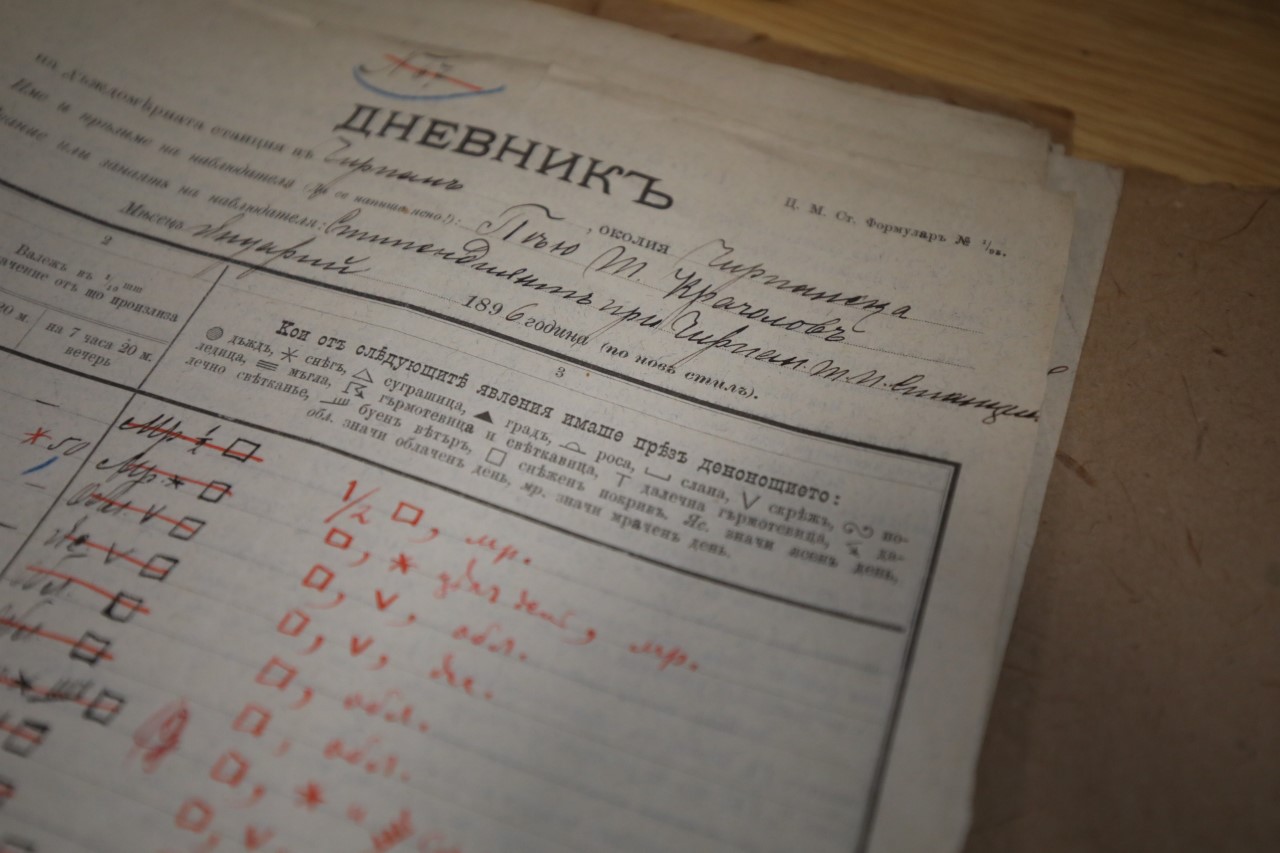 ДНЕВНИКЪ
Ц. М. Ст. Формуларъ №
на дъждомѣрната станция въ Чирпанъ, околия Чирпанска
Име и прѣзиме на наблюдателя (да се напише ясно!): Пѣю Т. Крачоловъ
или занаятъ на наблюдателя: Стипендиянтъ при Чирпан. М. Станция
Мѣсецъ Януарий 1896 година (по новъ стилъ).
2
Валежъ въ 1/10 mm
от що произлиза
20 м.
на 7 часа 20 м.
вечерь
3
Кои отъ слѣдующитѣ явления имаше прѣзъ денонощието:
дъждъ, снѣгъ, суграшица, градъ, роса, слана, скрѣжъ, по-
ледица, мъгла, гърмотевица и свѣткавица, далечна гърмотевица, да-
лечно свѣтканье, буенъ вѣтъръ, снѣженъ покривъ. Яс. значи ясенъ день,
обл. значи облаченъ день, мр. значи мраченъ день.
– Мр □ 1/2 □, мр.
* 50 Мр. * □ □, * цѣлъ день, мр.
– обл. v □ □, v, обл.
– v □ □, v, яс.
обл □ □, обл.
□ □, обл.
* □ □, *
□ □, v